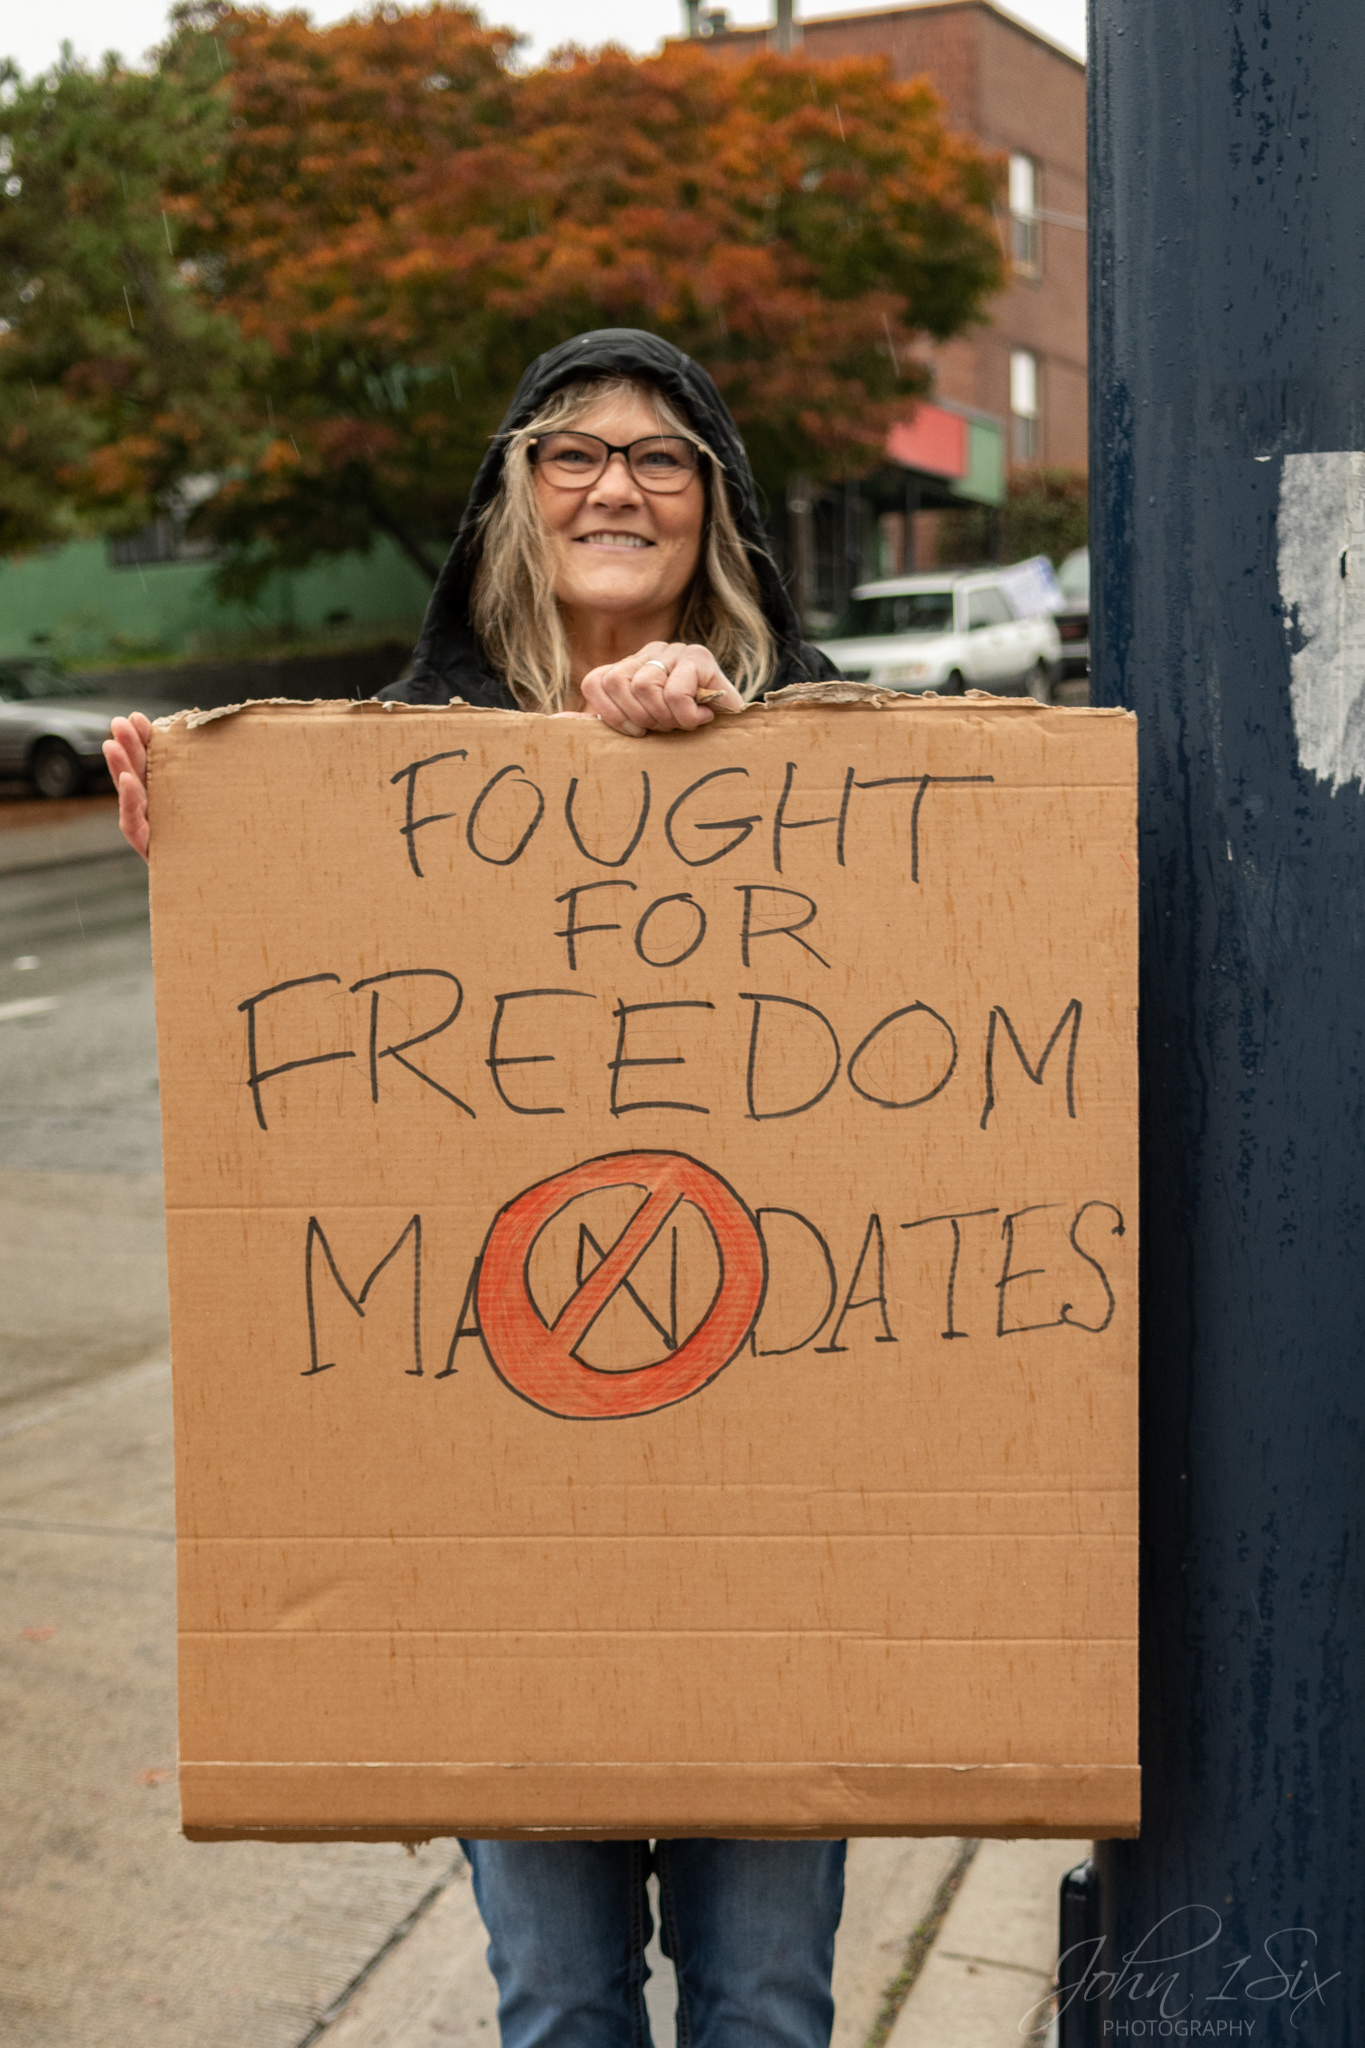 FOUGHT
FOR
FREEDOM
MANDATES
John 1Six
PHOTOGRAPHY